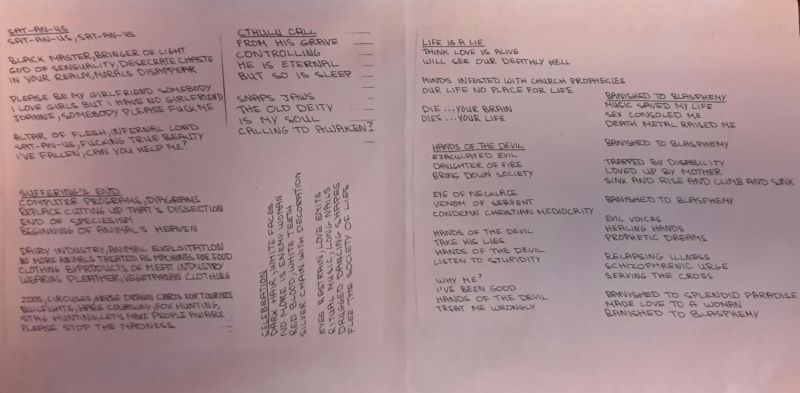 SAT-AN-US
SAT-AN-US, SAT-AN-US
BLACK MASTER, BRINGER OF LIGHT
GOD OF SENSUALITY, DESECRATE CHASTE
IN YOUR REALM, MORALS DISAPPEAR
PLEASE BE MY GIRLFRIEND SOMEBODY
I LOVE GIRLS BUT I HAVE NO GIRLFRIEND
JOANNE, SOMEBODY PLEASE FUCK ME
ALTAR OF FLESH, INFERNAL LORD
SAT-AN-US, FUCKING TRUE BEAUTY
I'VE FALLEN, CAN YOU HELP ME?
SUFFERING'S END
COMPUTER PROGRAMS, DIAGRAMS
REPLACE CUTTING UP THAT'S DISSECTION
END OF SPECIESISM
BEGINNING OF ANIMAL'S HEAVEN
DAIRY INDUSTRY, ANIMAL EXPLOITATION
NO MORE ANIMALS TREATED AS MACHINES FOR FOOD
CLOTHING BYPRODUCTS OF MEAT INDUSTRY
WEARING PLEATHER, VEGETARIAN CLOTHING
ZOOS, CIRCUSES, HORSE DRAWN CARTS FOR TOURISTS
BULLFIGHTS, HARE COURSING, FOX HUNTING,
STAG HUNTING, LET'S MAKE PEOPLE AWARE
PLEASE STOP THE MADNESS
CTHULU CALL
FROM HIS GRAVE
CONTROLLING
HE IS ETERNAL
BUT SO IS SLEEP
SNAPS JAWS
THE OLD DEITY
IS MY SOUL
CALLING TO AWAKEN?
CELEBRATION
DARK HAIR, WHITE FACES
NO MORE IS ENEMY WOMAN
RED BLOOD, WHITE TEETH
SILVER CHAIN WITH DECORATION
EYES RESTRAIN, LOVE EMITS
RITUAL MUSIC, LONG NAILS
DRUGGED DANCING SHAPES
FLEE THE SOCIETY OF LIES
LIFE IS A LIE
THINK LOVE IS ALIVE
WILL SEE OUR DEATHLY HELL
MINDS INFESTED WITH CHURCH PROPHECIES
OUR LIFE NO PLACE FOR LIFE
DIE...YOUR BRAIN
DIES...YOUR LIFE
HANDS OF THE DEVIL
EJACULATED EVIL
DAUGHTER OF FIRE
BRING DOWN SOCIETY
EYE OF NECKLACE
VENOM OF SERPENT
CONDEMN CHRISTIAN MEDIOCRITY
HANDS OF THE DEVIL
TAKE HIS LIES
HANDS OF THE DEVIL
LISTEN TO STUPIDITY
WHY ME?
I'VE BEEN GOOD
HANDS OF THE DEVIL
TREAT ME WRONGLY
BANISHED TO BLASPHEMY
MUSIC SAVED MY LIFE
SEX CONSOLED ME
DEATH METAL RAISED ME
BANISHED TO BLASPHEMY
TRAPPED BY DISABILITY
LOVED UP BY MOTHER
SINK AND RISE AND CLIMB AND SINK
BANISHED TO BLASPHEMY
EVIL VOICES
HEALING HANDS
PROPHETIC DREAMS
RELAPSING ILLNESS
SCHIZOPHRENIC URGE
SERVING THE CROSS
BANISHED TO SPLENDID PARADISE
MADE LOVE TO A WOMAN
BANISHED TO BLASPHEMY